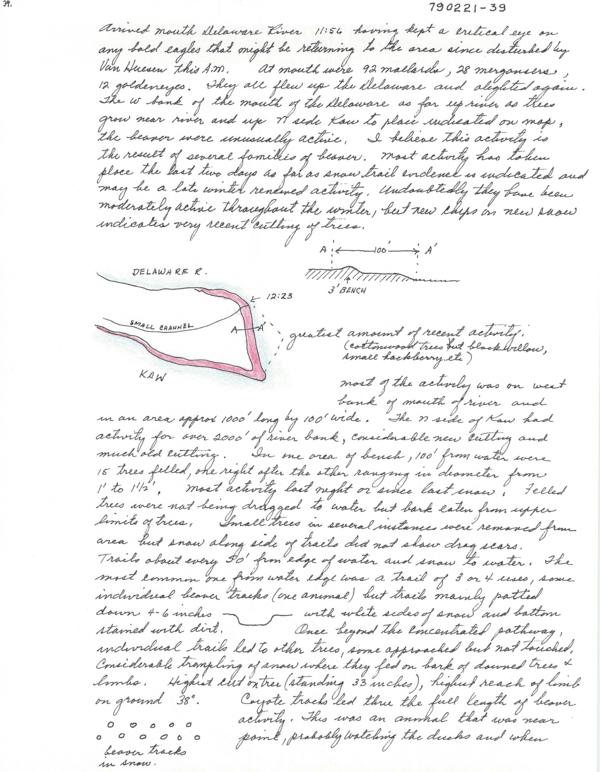 39.
790221-39
Arrived mouth Delaware River 11:56 having kept a critical eye on
any bald eagles that might be returning to the area since disturbed by
Van Huesen this A.M. At mouth were 92 mallards, 28 mergansers,
12 goldeneyes. They all flew up the Delaware and alighted again.
The W bank of the mouth of the Delaware as far up river as trees
grow near river and up N side Kaw to place indicated on map,
the beaver were unusually active. I believe this activity is
the result of several families of beaver. Most activity has taken
place the last two days as far as snow trail evidence is indicated and
may be a late winter renewed activity. Undoubtedly they have been
moderately active throughout the winter, but new chips on new snow
indicates very recent cutting of trees.
A 100' A'
3' BENCH
DELAWARE R.
12:23
SMALL CHANNEL
A A'
KAW
greatest amount of recent activity.
(cottonwood trees but black willow,
small hackberry etc)
most of the activity was on west
bank of mouth of river and
in an area approx 1000' long by 100' wide. The N side of Kaw had
activity for over 2000' of river bank, considerable new cutting and
much old cutting. In one area of bench, 100' from water were
15 trees felled, one right after the other ranging in diameter from
1' to 1½'. most activity last night or since last snow. Felled
trees were not being dragged to water but bark eaten from upper
limits of trees. Small trees in several instances were removed from
area but snow along side of trails did not show drag scars.
Trails about every 50' from edge of water and snow to water. The
most common one from water edge was a trail of 3 or 4 uses, some
individual beaver tracks (one animal) but trails mainly patted
down 4-6 inches with white sides of snow and bottom
stained with dirt. Once beyond the concentrated pathway,
individual trails led to other trees, some approached but not touched.
Considerable trampling of snow where they fed on bark of downed trees &
limbs. Highest cut on tree (standing 33 inches), highest reach of limb
on ground 38". Coyote tracks led thru the full length of beaver
activity. This was an animal that was near
point, probably watching the ducks and when
beaver tracks
in snow.